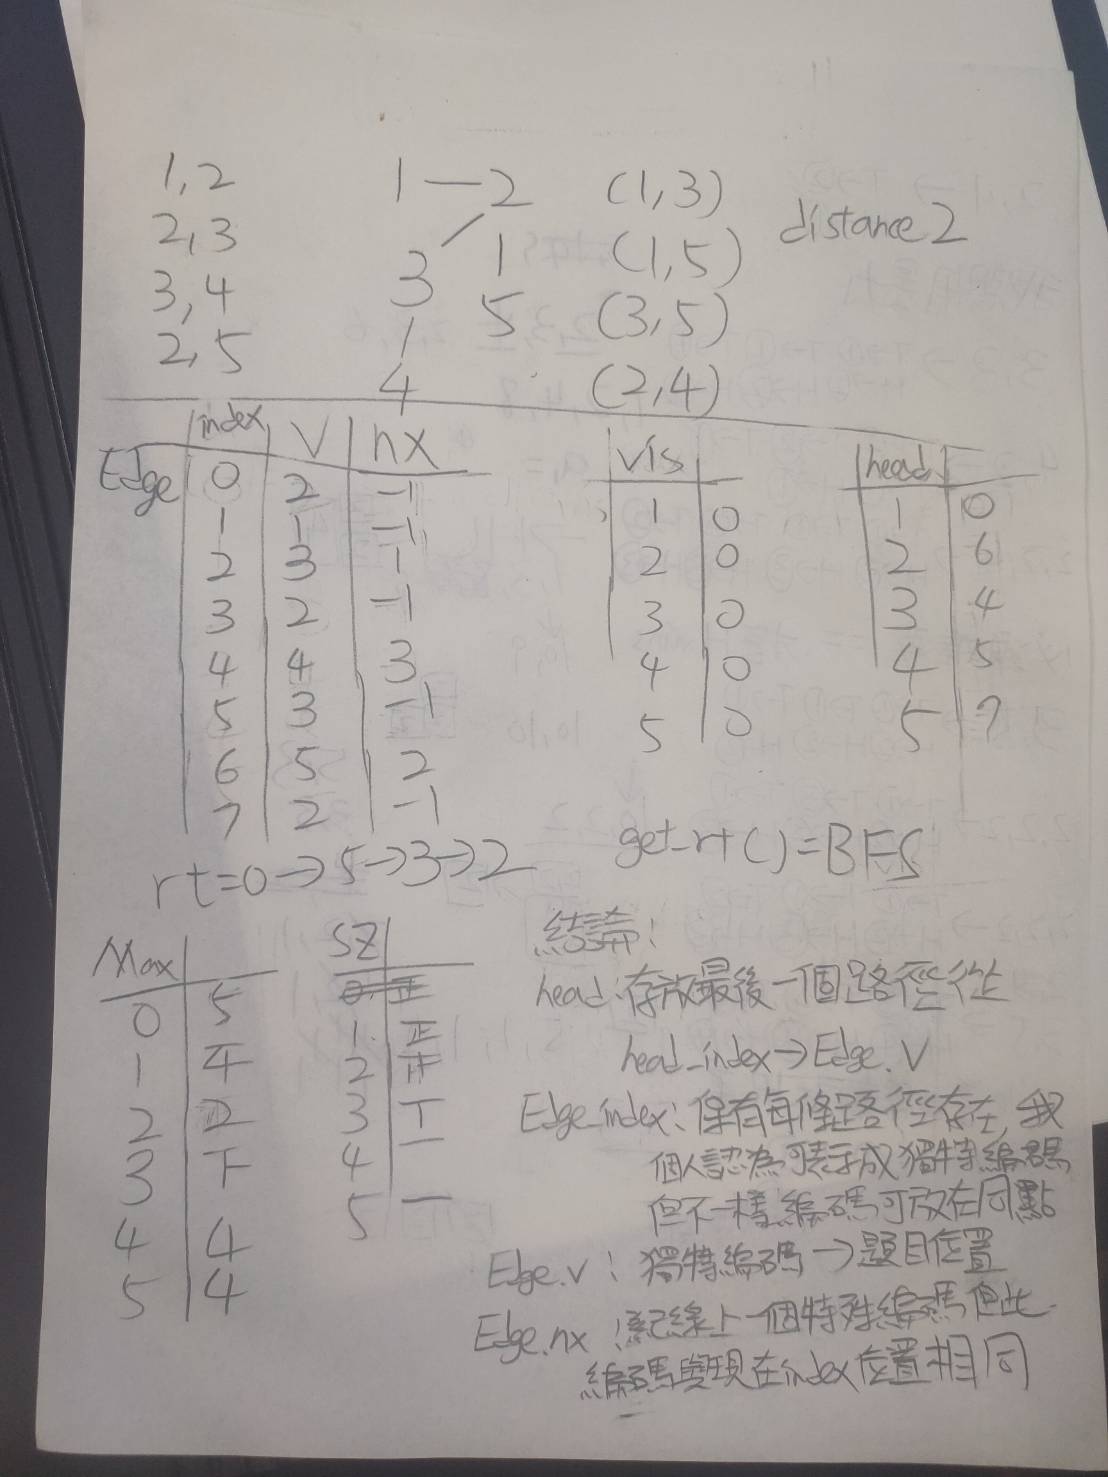 1,2
2,3
3,4
2,5
1 — 2
3 1
5
4
(1,3)
(1,5)
(3,5)
(2,4)
distance 2
Edge index V nx
0 2 -1
1 1 -1
2 3 1
3 2 -1
4 4 3
5 3 -1
6 5 2
7 2 -1
vis
1 0
2 0
3 0
4 0
5 0
head
1 0
2 6
3 4
4 5
5 7
rt=0→5→3→2
get_rt()=BFS
Max
0 5
1
2
3
4 4
5 4
SZ
1 正
2 正
3 丅
4 一
5 一
結論:
head:存放最後一個路徑從
head_index→Edge.V
Edge_index:保有每條路徑存在,我
個人認為可表示成獨特編碼
但不一樣編碼可放在同點
Edge.v:獨特編碼→題目位置
Edge.nx:紀錄上一個特殊編碼但此
編碼與現在index位置相同